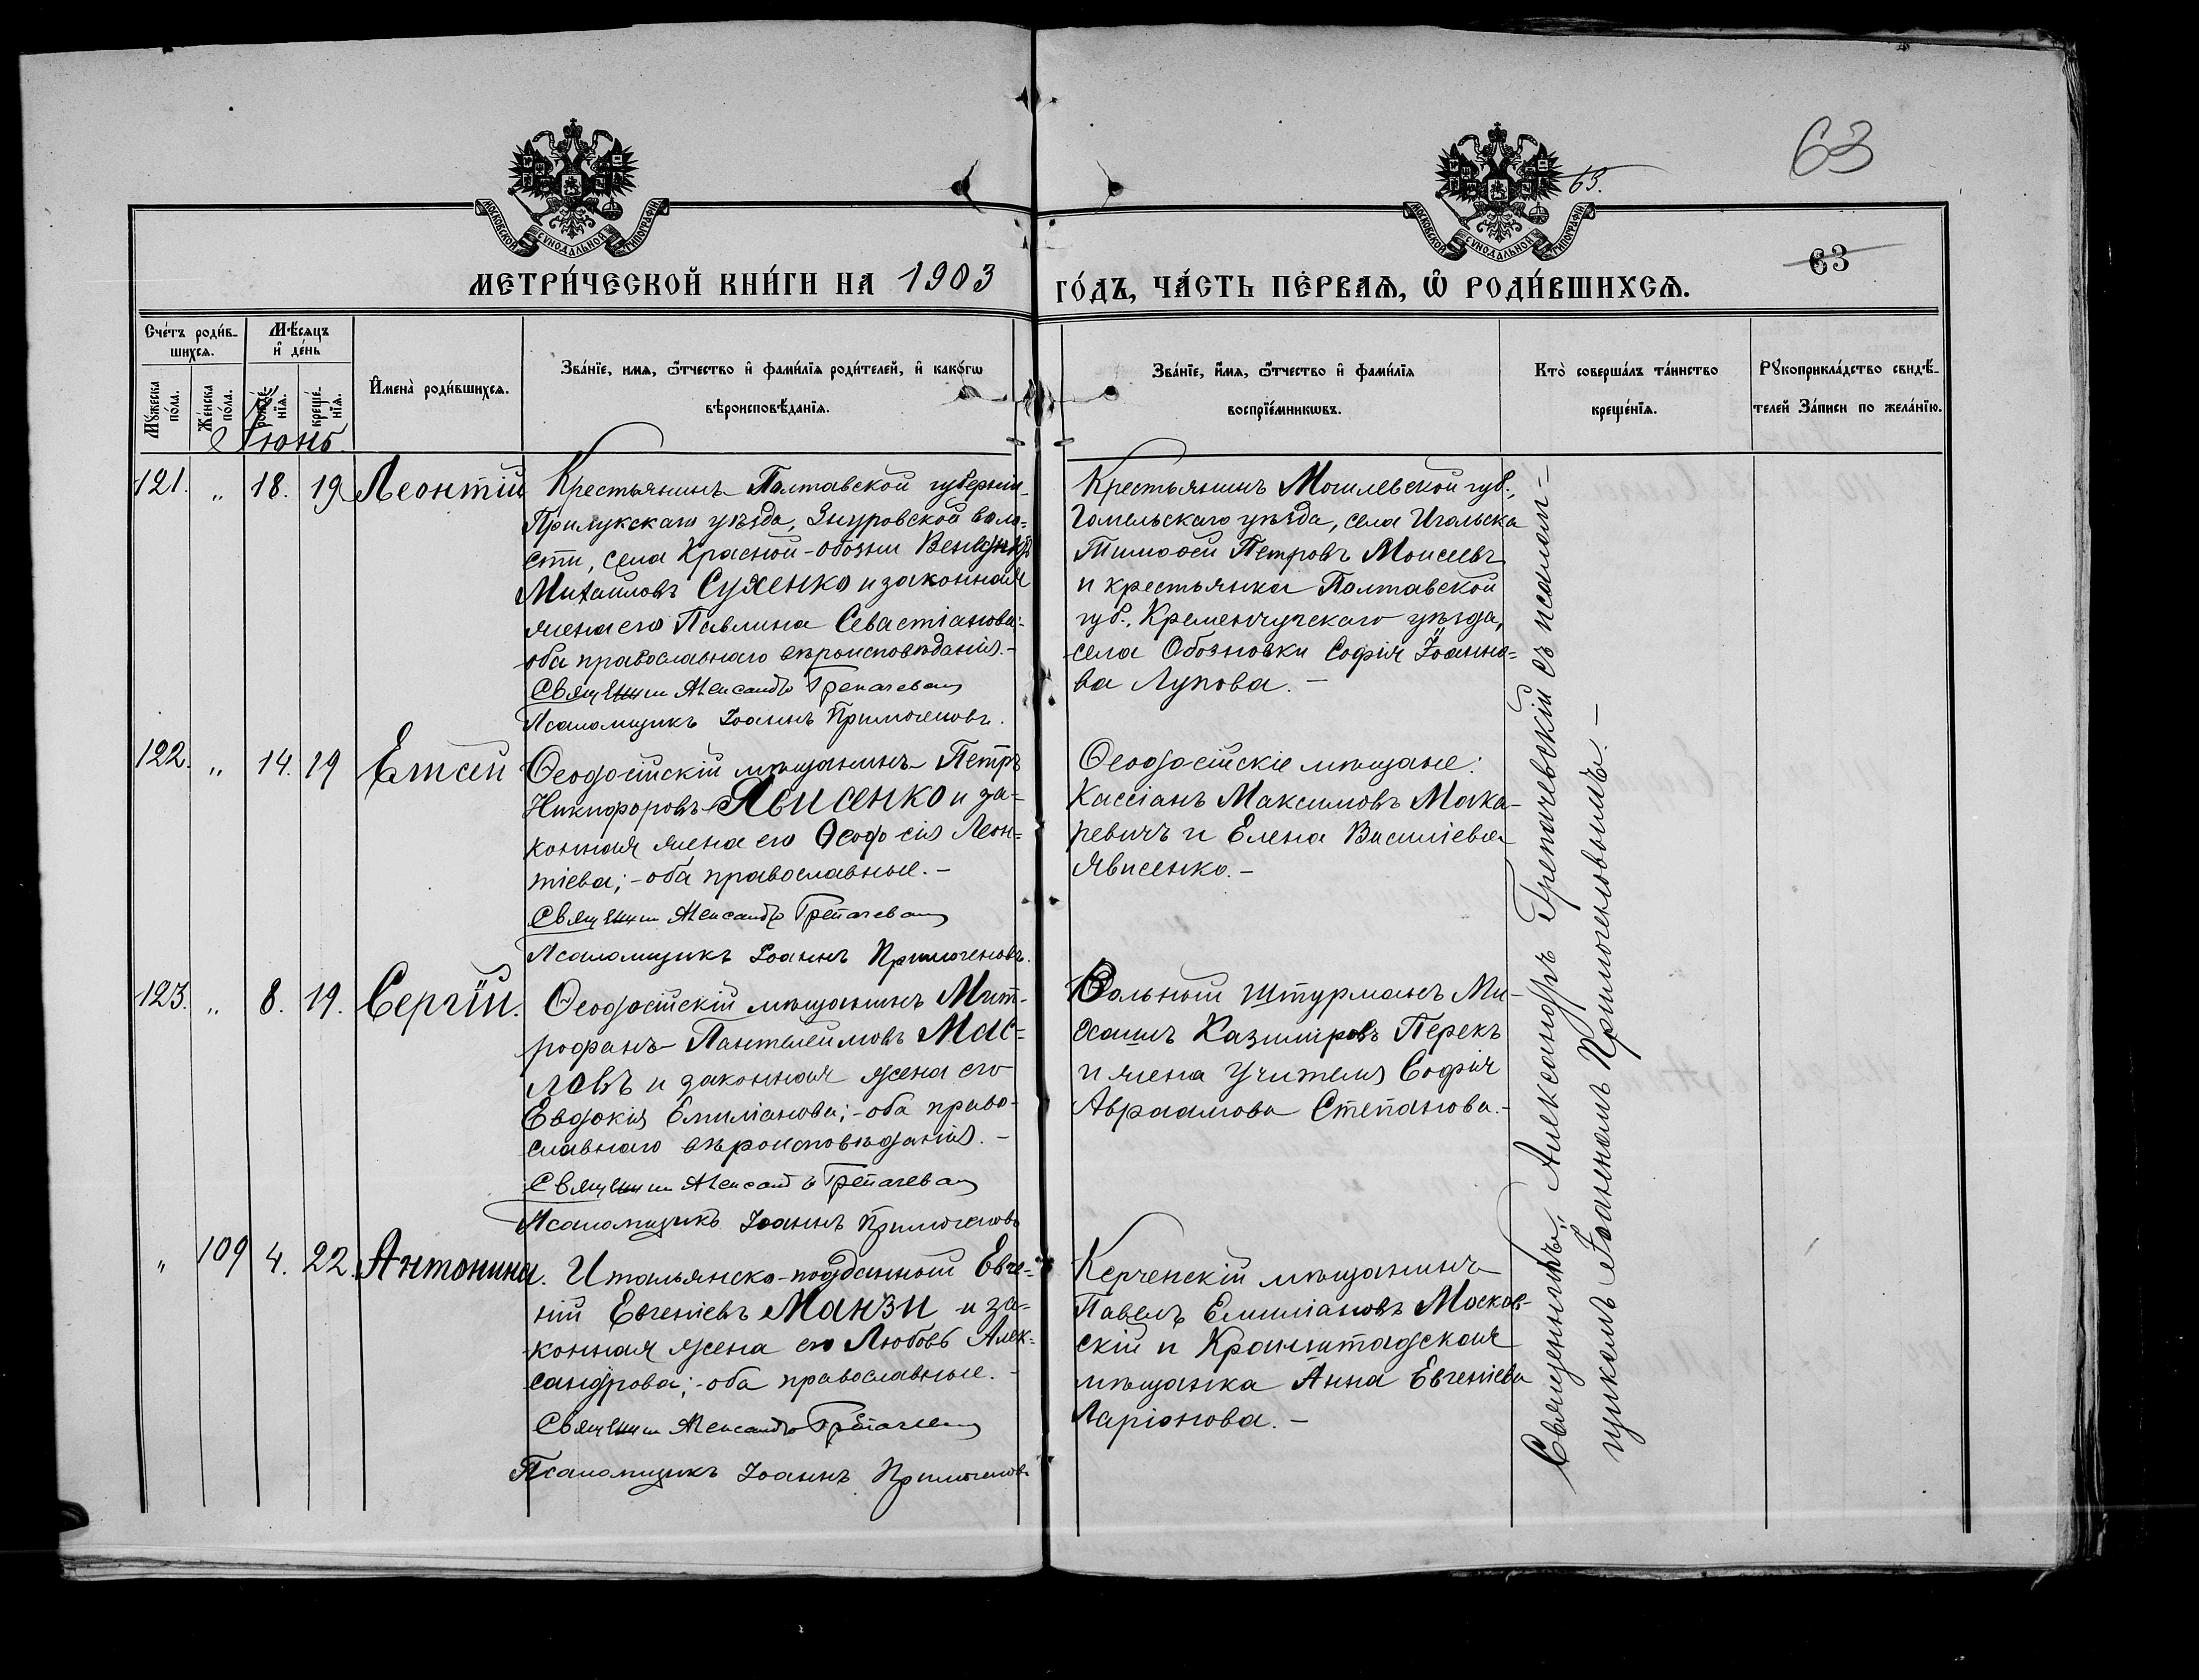 63
63.
63
МОСКОВСКОЙ СУНОДАЛЬНОЙ ТИПОГРАФІИ
МОСКОВСКОЙ СУНОДАЛЬНОЙ ТИПОГРАФІИ
МЕТРИ́ЧЕСКОЙ КНИ́ГИ НА 1903
ГО́ДЪ, ЧА́СТЬ ПЕ́РВАѦ, Ѿ РОДИ́ВШИХСѦ.
Сче́тъ роди́в-
шихсѧ.
Мѣ́сѧцъ
и҆ де́нь
Мꙋжеска по́ла.
Же́нска по́ла.
рожде́-нїѧ.
креще́-нїѧ.
И҆мена̀ роди́вшихсѧ.
Зва́нїе, имѧ, ѻ҆́тчество и҆ фами́лїѧ роди́телей, и҆ како́гѡ
вѣроисповѣ́данїѧ.
Зва́нїе, и҆́мѧ, ѻ҆́тчество и҆ фами́лїѧ
воспрїе́мникѡвъ.
Кто̀ соверша́лъ та́инство
креще́нїѧ.
Рꙋкоприкла́дство свидѣ́-
телей За́писи по жела́нїю.
Іюнь.
121. „ 18. 19 Леонтій
Крестьянинъ Полтавской губерніи
Прилукскаго уѣзда, Згуровской воло=
сти, села Красной-
Михаиловъ Сухенко и законная
жена его Павлина Севастіанова:-
оба православнаго вѣроисповѣданія.-
Священник Александр Грепачевскій
Псаломщикъ Іоаннъ Примогеновъ.
Крестьянинъ Могилевской губ.,
Гомельскаго уѣзда, села Игольска
Тимоѳей Петровъ Моисеевъ
и крестьянка Полтавской
губ., Кременчугскаго уѣзда,
села Обозновки Софія Іоанно=
ва Лупова.-
122. „ 14. 19 Елисей
Ѳеодосійскій мѣщанинъ Петръ
Никифоровъ Явисенко и за=
конная жена его Ѳеодосія Леон=
тіева;-оба православные.-
Священник Александр Грепачевскій
Псаломщикъ Іоаннъ Примогеновъ.
Ѳеодосійскіе мѣщане:
Кассіанъ Максимовъ Мака-
ревичъ и Елена Василіева
Явисенко.-
123. „ 8. 19. Сергій.
Ѳеодосійскій мѣщанинъ Мит-
рофанъ Пантелеимовъ Мас=
ловъ и законная жена его
Евдокія Емиліанова;-оба право-
славнаго вѣроисповѣданія.-
Священник Александр Грепачевскій
Псаломщикъ Іоаннъ Примогеновъ
Вольный штурманъ Ми-
хаилъ Казимировъ Перекъ
и жена учителя Софія
Авраамова Степанова.-
„ 109 4. 22. Антонина.
Итальянско-подданный Евге=
ній Евгеніевъ Манзи и за=
конная жена его Любовь Алек=
сандрова;-оба православные.-
Священник Александр Грепачевскій
Псаломщикъ Іоаннъ Примогеновъ
Керченскій мѣщанинъ
Павелъ Емиліановъ Москов-
скій и Кронштадская
мѣщанка Анна Евгеніева
Ларіонова.-
Священникъ Александръ Грепачевскій съ псалом-
щикомъ Іоанномъ Примогеновымъ.-